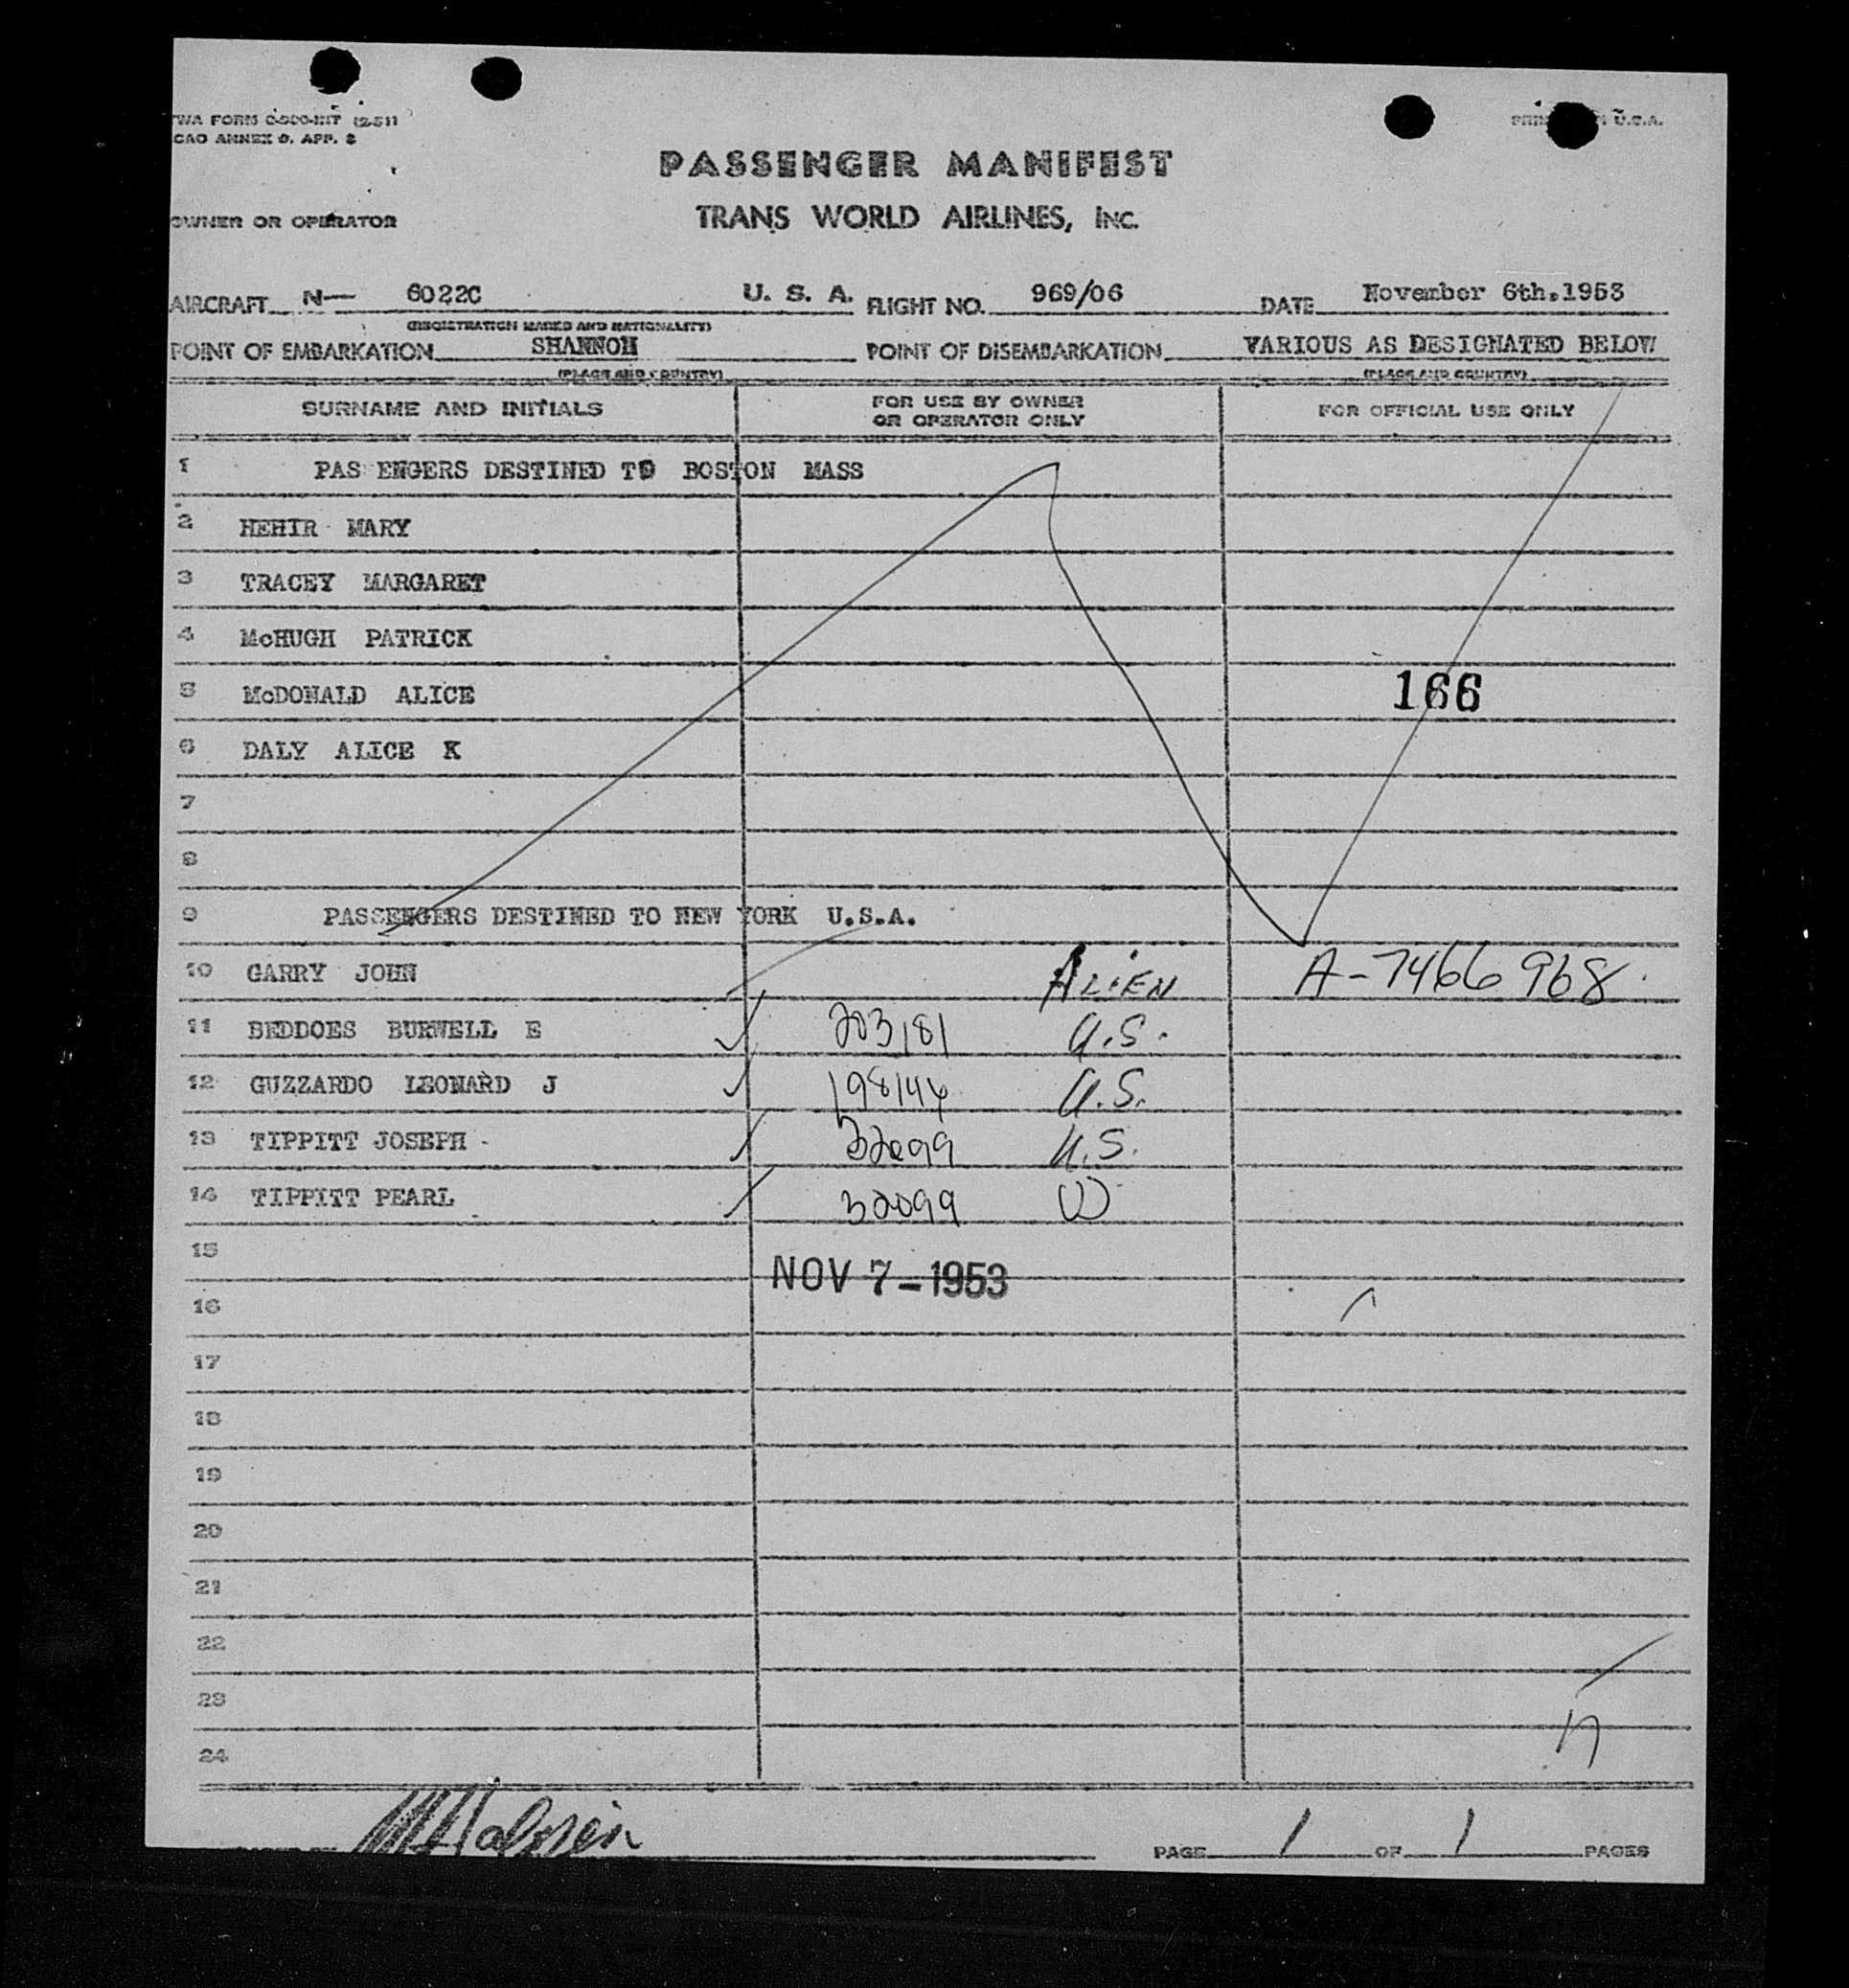 TWA FORM (2-51)
ICAO ANNEX 9, APP. 2
U.S.A.
PASSENGER MANIFEST
OWNER OR OPERATOR
TRANS WORLD AIRLINES, INC.
AIRCRAFT N— 6022C U. S. A. FLIGHT NO. 969/06 DATE November 6th.1953
(REGISTRATION MARKS AND NATIONALITY)
POINT OF EMBARKATION SHANNON POINT OF DISEMBARKATION VARIOUS AS DESIGNATED BELOW
(PLACE AND COUNTRY) (PLACE AND COUNTRY)
SURNAME AND INITIALS FOR USE BY OWNER OR OPERATOR ONLY FOR OFFICIAL USE ONLY
1 PAS ENGERS DESTINED TO BOSTON MASS
2 HEHIR MARY
3 TRACEY MARGARET
4 McHUGH PATRICK
5 McDONALD ALICE 166
6 DALY ALICE K
7
8
9 PASSENGERS DESTINED TO NEW YORK U.S.A.
10 GARRY JOHN ALIEN A-7466968
11 BEDDOES BURWELL E 203181 U.S.
12 GUZZARDO LEONARD J 198144 U.S.
13 TIPPITT JOSEPH - 32099 U.S.
14 TIPPITT PEARL 32099
15
NOV 7-1953
16
17
18
19
20
21
22
23
24
PAGE 1 OF 1 PAGES